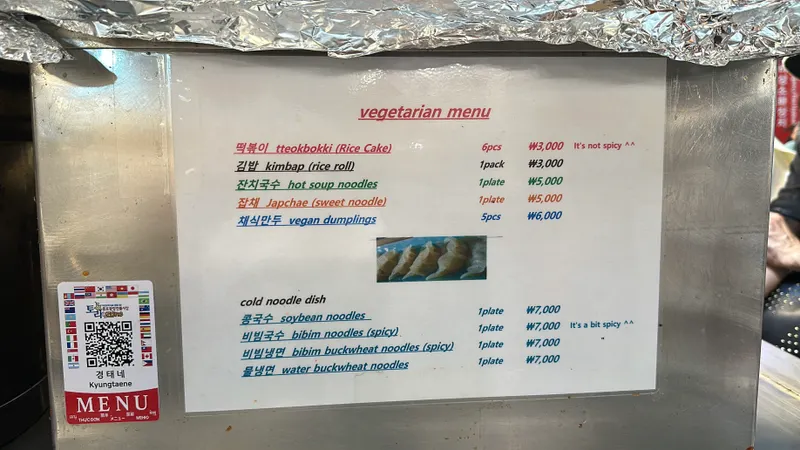 vegetarian menu
떡볶이 tteokbokki (Rice Cake) 6pcs ₩3,000 It's not spicy ^^
김밥 kimbap (rice roll) 1pack ₩3,000
잔치국수 hot soup noodles 1plate ₩5,000
잡채 Japchae (sweet noodle) 1plate ₩5,000
채식만두 vegan dumplings 5pcs ₩6,000
cold noodle dish
콩국수 soybean noodles 1plate ₩7,000
비빔국수 bibim noodles (spicy) 1plate ₩7,000 It's a bit spicy ^^
비빔냉면 bibim buckwheat noodles (spicy) 1plate ₩7,000
물냉면 water buckwheat noodles 1plate ₩7,000
경태네
Kyungtaene
MENU
THỰC ĐƠN メニュー МЕНЮ